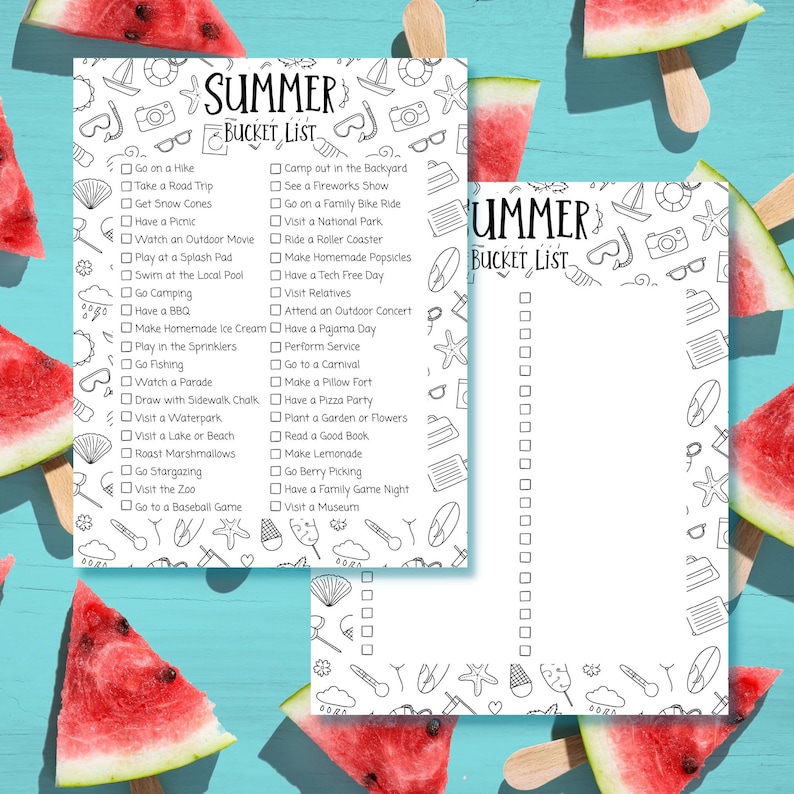 SUMMER
BUCKET LIST
Go on a Hike
Take a Road Trip
Get Snow Cones
Have a Picnic
Watch an Outdoor Movie
Play at a Splash Pad
Swim at the Local Pool
Go Camping
Have a BBQ
Make Homemade Ice Cream
Play in the Sprinklers
Go Fishing
Watch a Parade
Draw with Sidewalk Chalk
Visit a Waterpark
Visit a Lake or Beach
Roast Marshmallows
Go Stargazing
Visit the Zoo
Go to a Baseball Game
Camp out in the Backyard
See a Fireworks Show
Go on a Family Bike Ride
Visit a National Park
Ride a Roller Coaster
Make Homemade Popsicles
Have a Tech Free Day
Visit Relatives
Attend an Outdoor Concert
Have a Pajama Day
Perform Service
Go to a Carnival
Make a Pillow Fort
Have a Pizza Party
Plant a Garden or Flowers
Read a Good Book
Make Lemonade
Go Berry Picking
Have a Family Game Night
Visit a Museum
SUMMER
BUCKET LIST